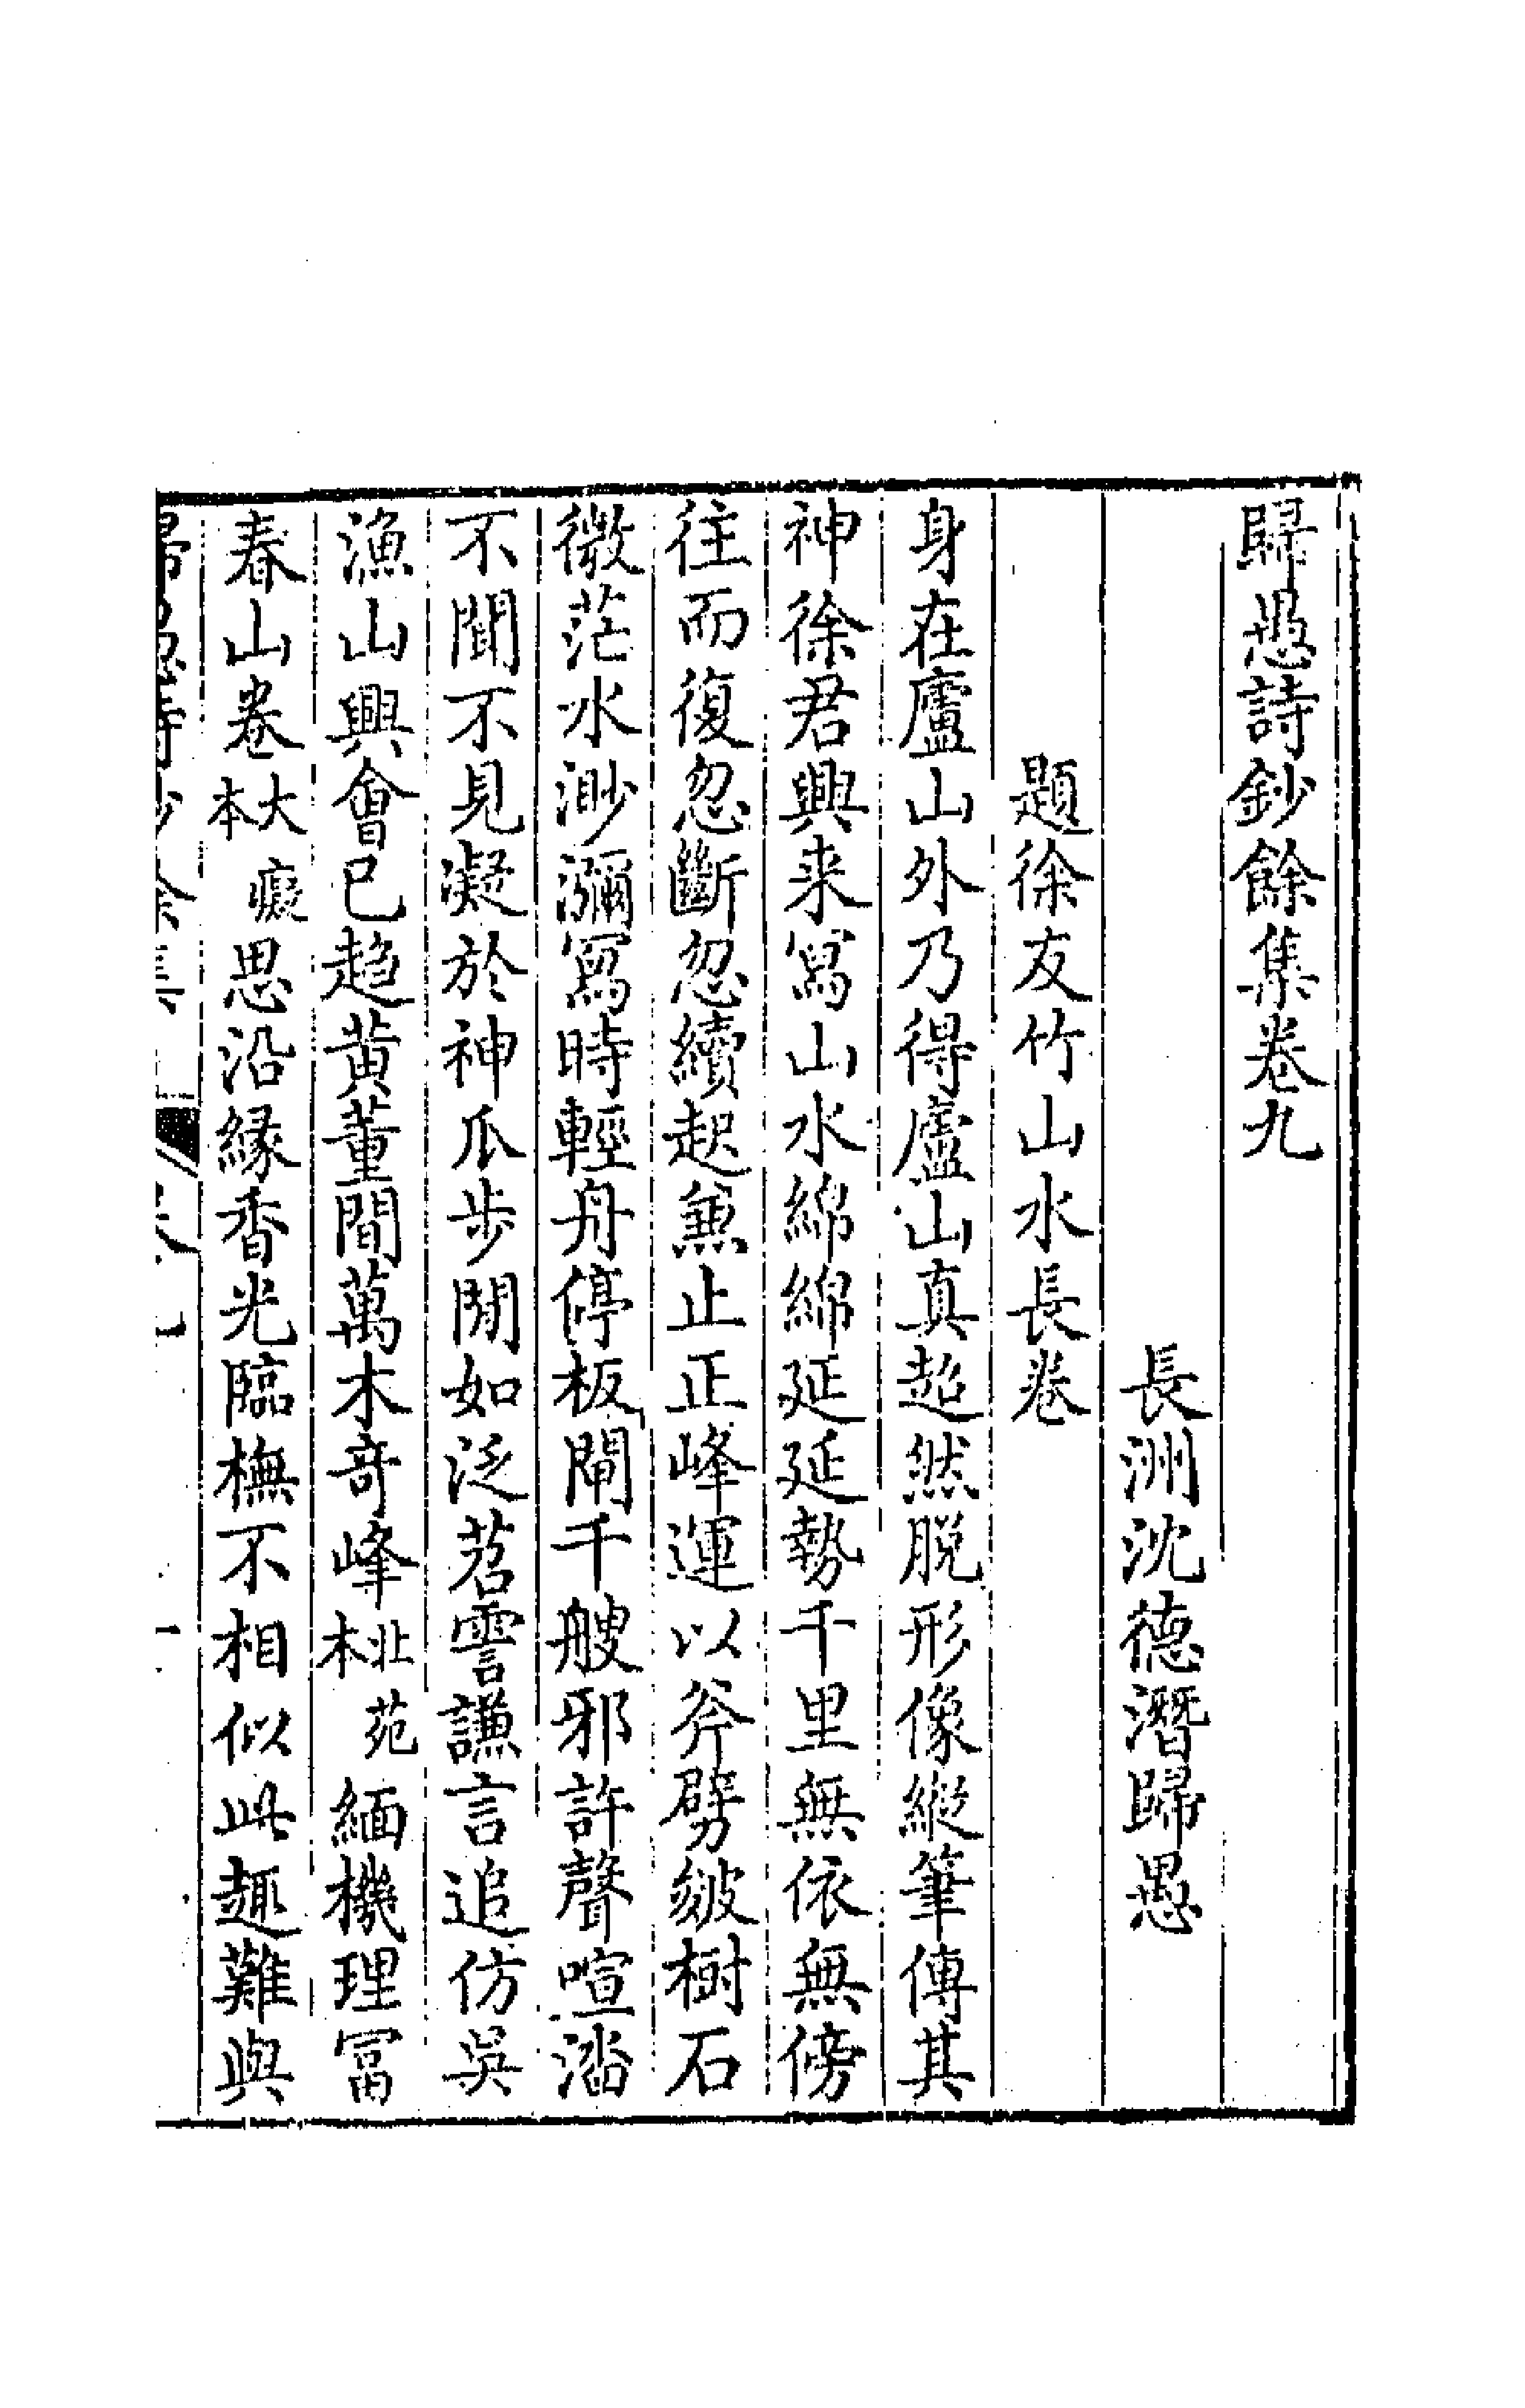 歸愚詩鈔餘集卷九
長洲沈德潛歸愚
題徐友竹山水長卷
身在廬山外乃得廬山真超然脫形像縱筆傳其
神徐君興来寫山水綿綿延延勢千里無依無傍
往而復忽斷忽續起兼止正峰運以斧劈皴樹石
微茫水渺瀰寫時輕舟停板閘千艘邪許聲喧濌
不聞不見凝於神瓜步閒如泛苕霅謙言追仿吳
漁山興會已趋黄董間萬木奇峰北苑本緬機理富
春山卷大癡本思沿緣香光臨橅不相似此趣難與